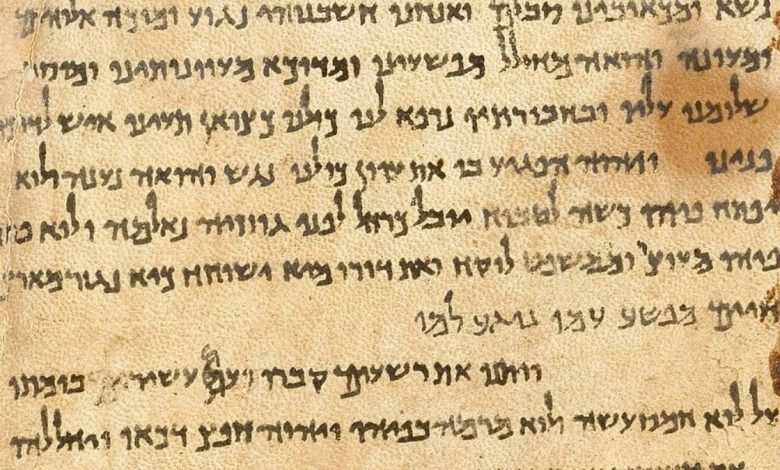 נשא ומכאובינו סבלם ואנחנו חשבנוהו נגוע ומוכה
ומעונה והואה מחולל מפשעינו ומדוכא מעוונותינו
שלומנו עליו ובחבורתיו נרפא לנו כולנו כצואן תעינו איש
פנינו ויהוה הפגיע בו את עוון כולנו נגש והואה נענה ולוא
יפתח פיהו כשה לטבוח יובל כרחל לפני גוזזיה נאלמה ולוא
פיהו מעוצר וממשפט לוקח ואת דורו מיא ישוחח כיא נגזר מארץ
חיים מפשע עמו נוגע למו
ויתנו את רשעים קברו ועם בומתו
על לוא חמס עשה ולוא מרמה בפיהו ויהוה חפץ דכאו ויחללהו